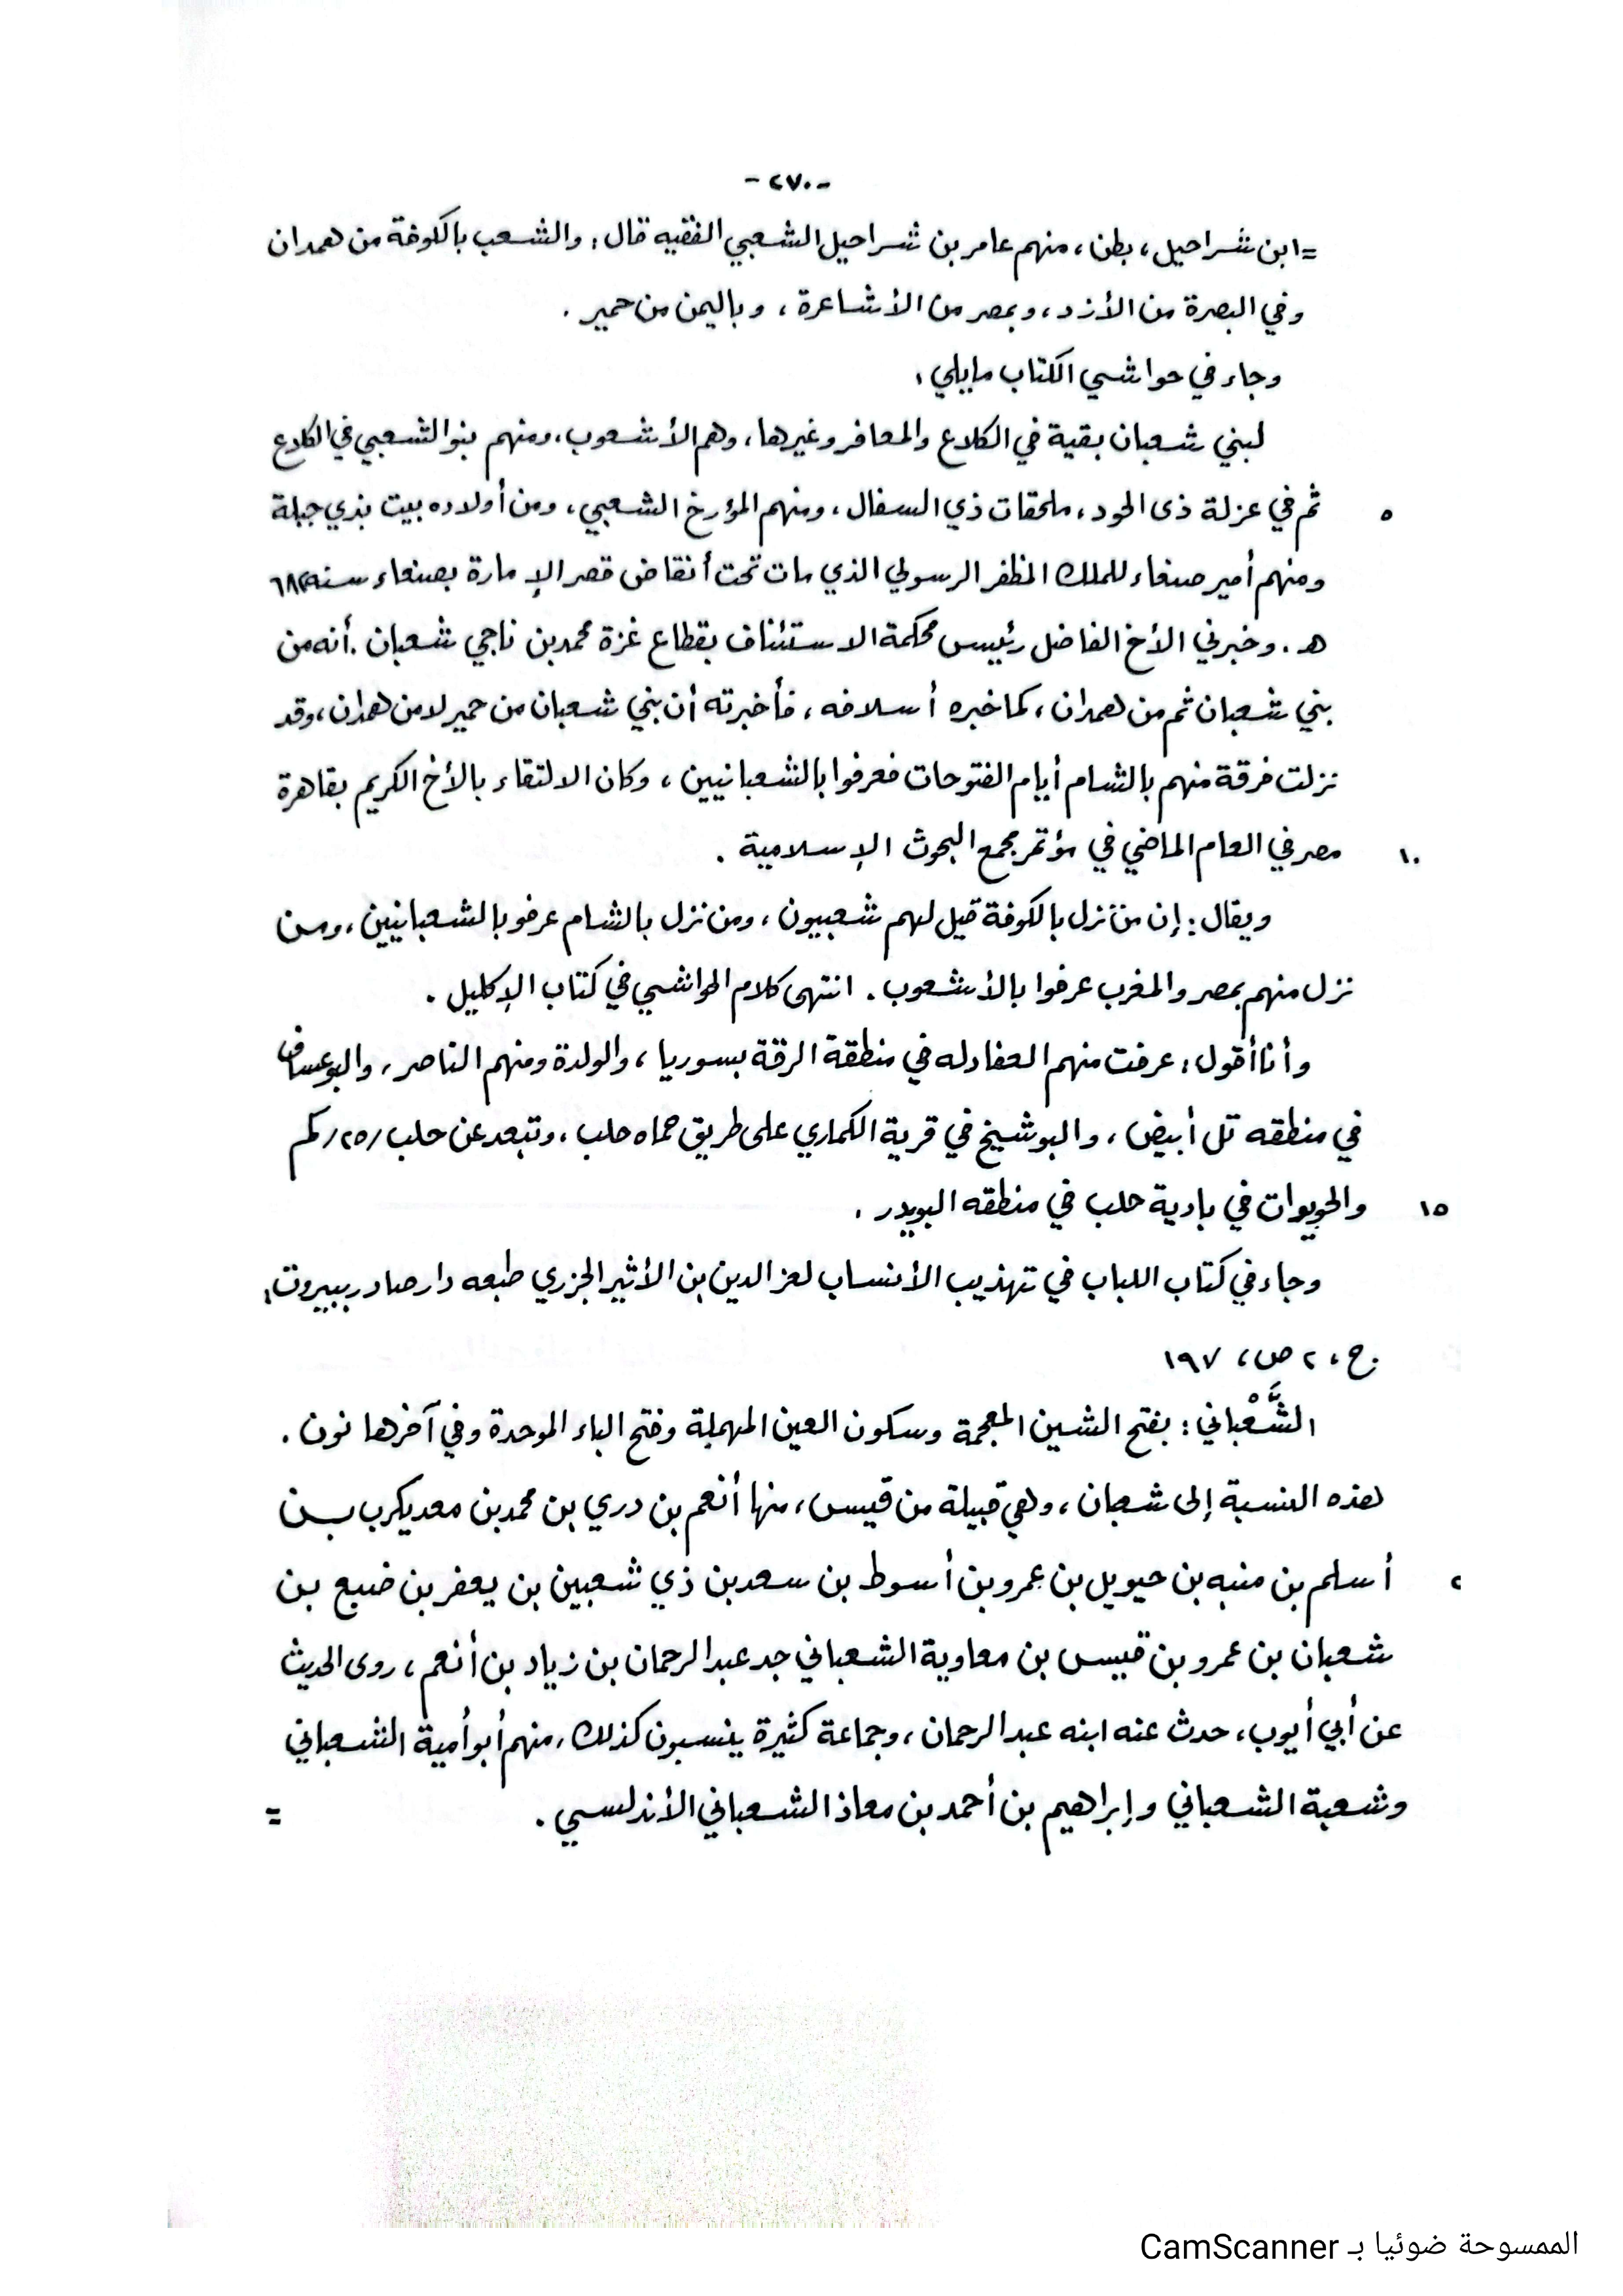 -٢٧٠-
=ابن شَراحيل، بطن، منهم عامر بن شراحيل الشعبي الفقيه قال: والشعب بالكوفة من همدان
وفي البصرة من الأزد، وبمصر من الأشاعرة، وباليمن من حمير.
وجاء في حواشي الكتاب مايلي:
لبني شعبان بقية في الكلاع والمعافر وغيرها، وهم الأشعوب، ومنهم بنوالشعبي في الكلاع
٥ ثم في عزلة ذى الحود، ملحقات ذي السفال، ومنهم المؤرخ الشعبي، ومن أولاده بيت بذي جبلة
ومنهم أمير صنعاء للملك المظفر الرسولي الذي مات تحت أنقاض قصر الإمارة بصنعاء سنه ٦٨٢
هـ. وخبرني الأخ الفاضل رئيس محكمة الاستئناف بقطاع غزة محمد بن ناجي شعبان. أنه من
بني شعبان ثم من همدان، كما خبره أسلافه، فأخبرته أن بني شعبان من حمير لا من همدان، وقد
نزلت فرقة منهم بالشام أيام الفتوحات فعرفوا بالشعبانيين، وكان الالتقاء بالأخ الكريم بقاهرة
١٠ مصر في العام الماضي في مؤتمر مجمع البحوث الإسلامية.
ويقال: إن من نزل بالكوفة قيل لهم شعبيون، ومن نزل بالشام عرفو بالشعبانيين، ومن
نزل منهم بمصر والمغرب عرفوا بالأشعوب. انتهى كلام الحواشي في كتاب الإكليل.
وأنا أقول: عرفت منهم العفادله في منطقة الرقة بسوريا، والولدة ومنهم الناصر، والبوعساف
في منطقه تل أبيض، والبوشيخ في قرية الكماري على طريق حماه حلب، وتبعد عن حلب /٢٥/ كم
١٥ والحويوات في بادية حلب في منطقه البويدر.
وجاء في كتاب اللباب في تهذيب الأنساب لعز الدين بن الأثير الجزري طبعه دار صادر ببيروت:
ج، ٢ ص، ١٩٧
الشَّعْباني: بفتح الشين المعجمة وسكون العين المهملة وفتح الباء الموحدة وفي آخرها نون.
هذه النسبة إلى شعبان، وهي قبيلة من قيس، منها أنعم بن دري بن محمد بن معديكرب بن
٢ أسلم بن منبه بن حيويل بن عمرو بن أسوط بن سعد بن ذي شعبين بن يعفر بن ضبع بن
شعبان بن عمرو بن قيس بن معاوية الشعباني جد عبد الرحمان بن زياد بن أنعم، روى الحديث
عن أبي أيوب، حدث عنه ابنه عبد الرحمان، وجماعة كثيرة ينسبون كذلك، منهم أبو أمية الشعباني
وشعبة الشعباني وإبراهيم بن أحمد بن معاذ الشعباني الأندلسي. =
الممسوحة ضوئيا بـ CamScanner